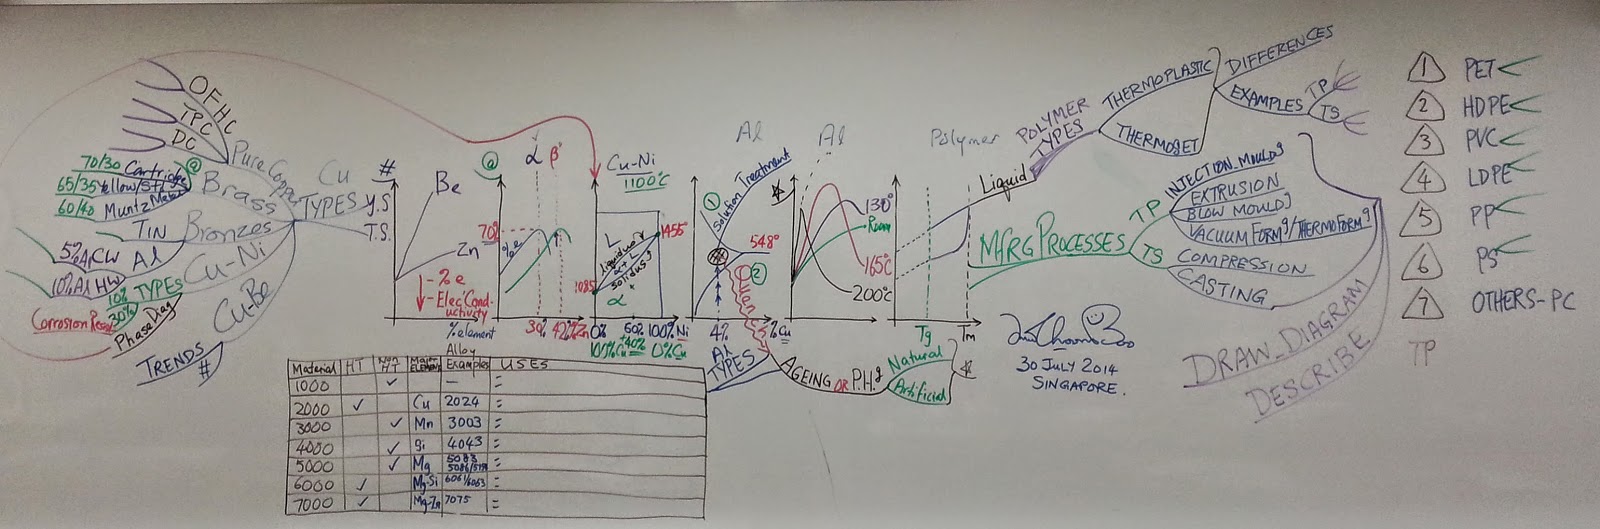 OFHC
TPC
DC
Pure Copper
70/30 Cartridge
65/35 Yellow/
60/40 Muntz Metal
@
Brass
Cu
TYPES
TIN
Bronzes
5% Al CW
Al
10% Al HW
Cu-Ni
TYPES
10%
30%
Corrosion
Phase Diag
Cu-Be
TRENDS
#
#
Y.S
T.S.
Be
Zn
- % e
- Elec' Cond-
uctivity
% element
Alloy
@
α
β'
70%
% e
30%
Zn
Cu-Ni
1100°C
1455°
L
liquidus
α + L
solidus
α
1085
0%
60%
100% Ni
100% Cu
40%
0% Cu
Al
1
Solution Treatment
548°
2
4%
% Cu
Al
TYPES
AGEING OR P.Hg
Natural
Artificial
Al
130°
Room
165°C
200°C
Polymer
Liquid
Tg
Tm
POLYMER
TYPES
THERMOPLASTIC
THERMOSET
DIFFERENCES
EXAMPLES
TP
TS
MFRG PROCESSES
TP
INJECTION MOULDg
EXTRUSION
BLOW MOULDg
VACUUM FORMg/THERMOFORMg
TS
COMPRESSION
CASTING
DRAW DIAGRAM
DESCRIBE
30 JULY 2014
SINGAPORE.
1 PET
2 HDPE
3 PVC
4 LDPE
5 PP
6 PS
7 OTHERS-PC
TP
Material HT Non HT Major Element Examples USES
1000 ✓ — =
2000 ✓ Cu 2024 =
3000 ✓ Mn 3003 =
4000 ✓ Si 4043 =
5000 ✓ Mg 5083 =
6000 ✓ Mg-Si 6061/6063 =
7000 ✓ Mg-Zn 7075 =